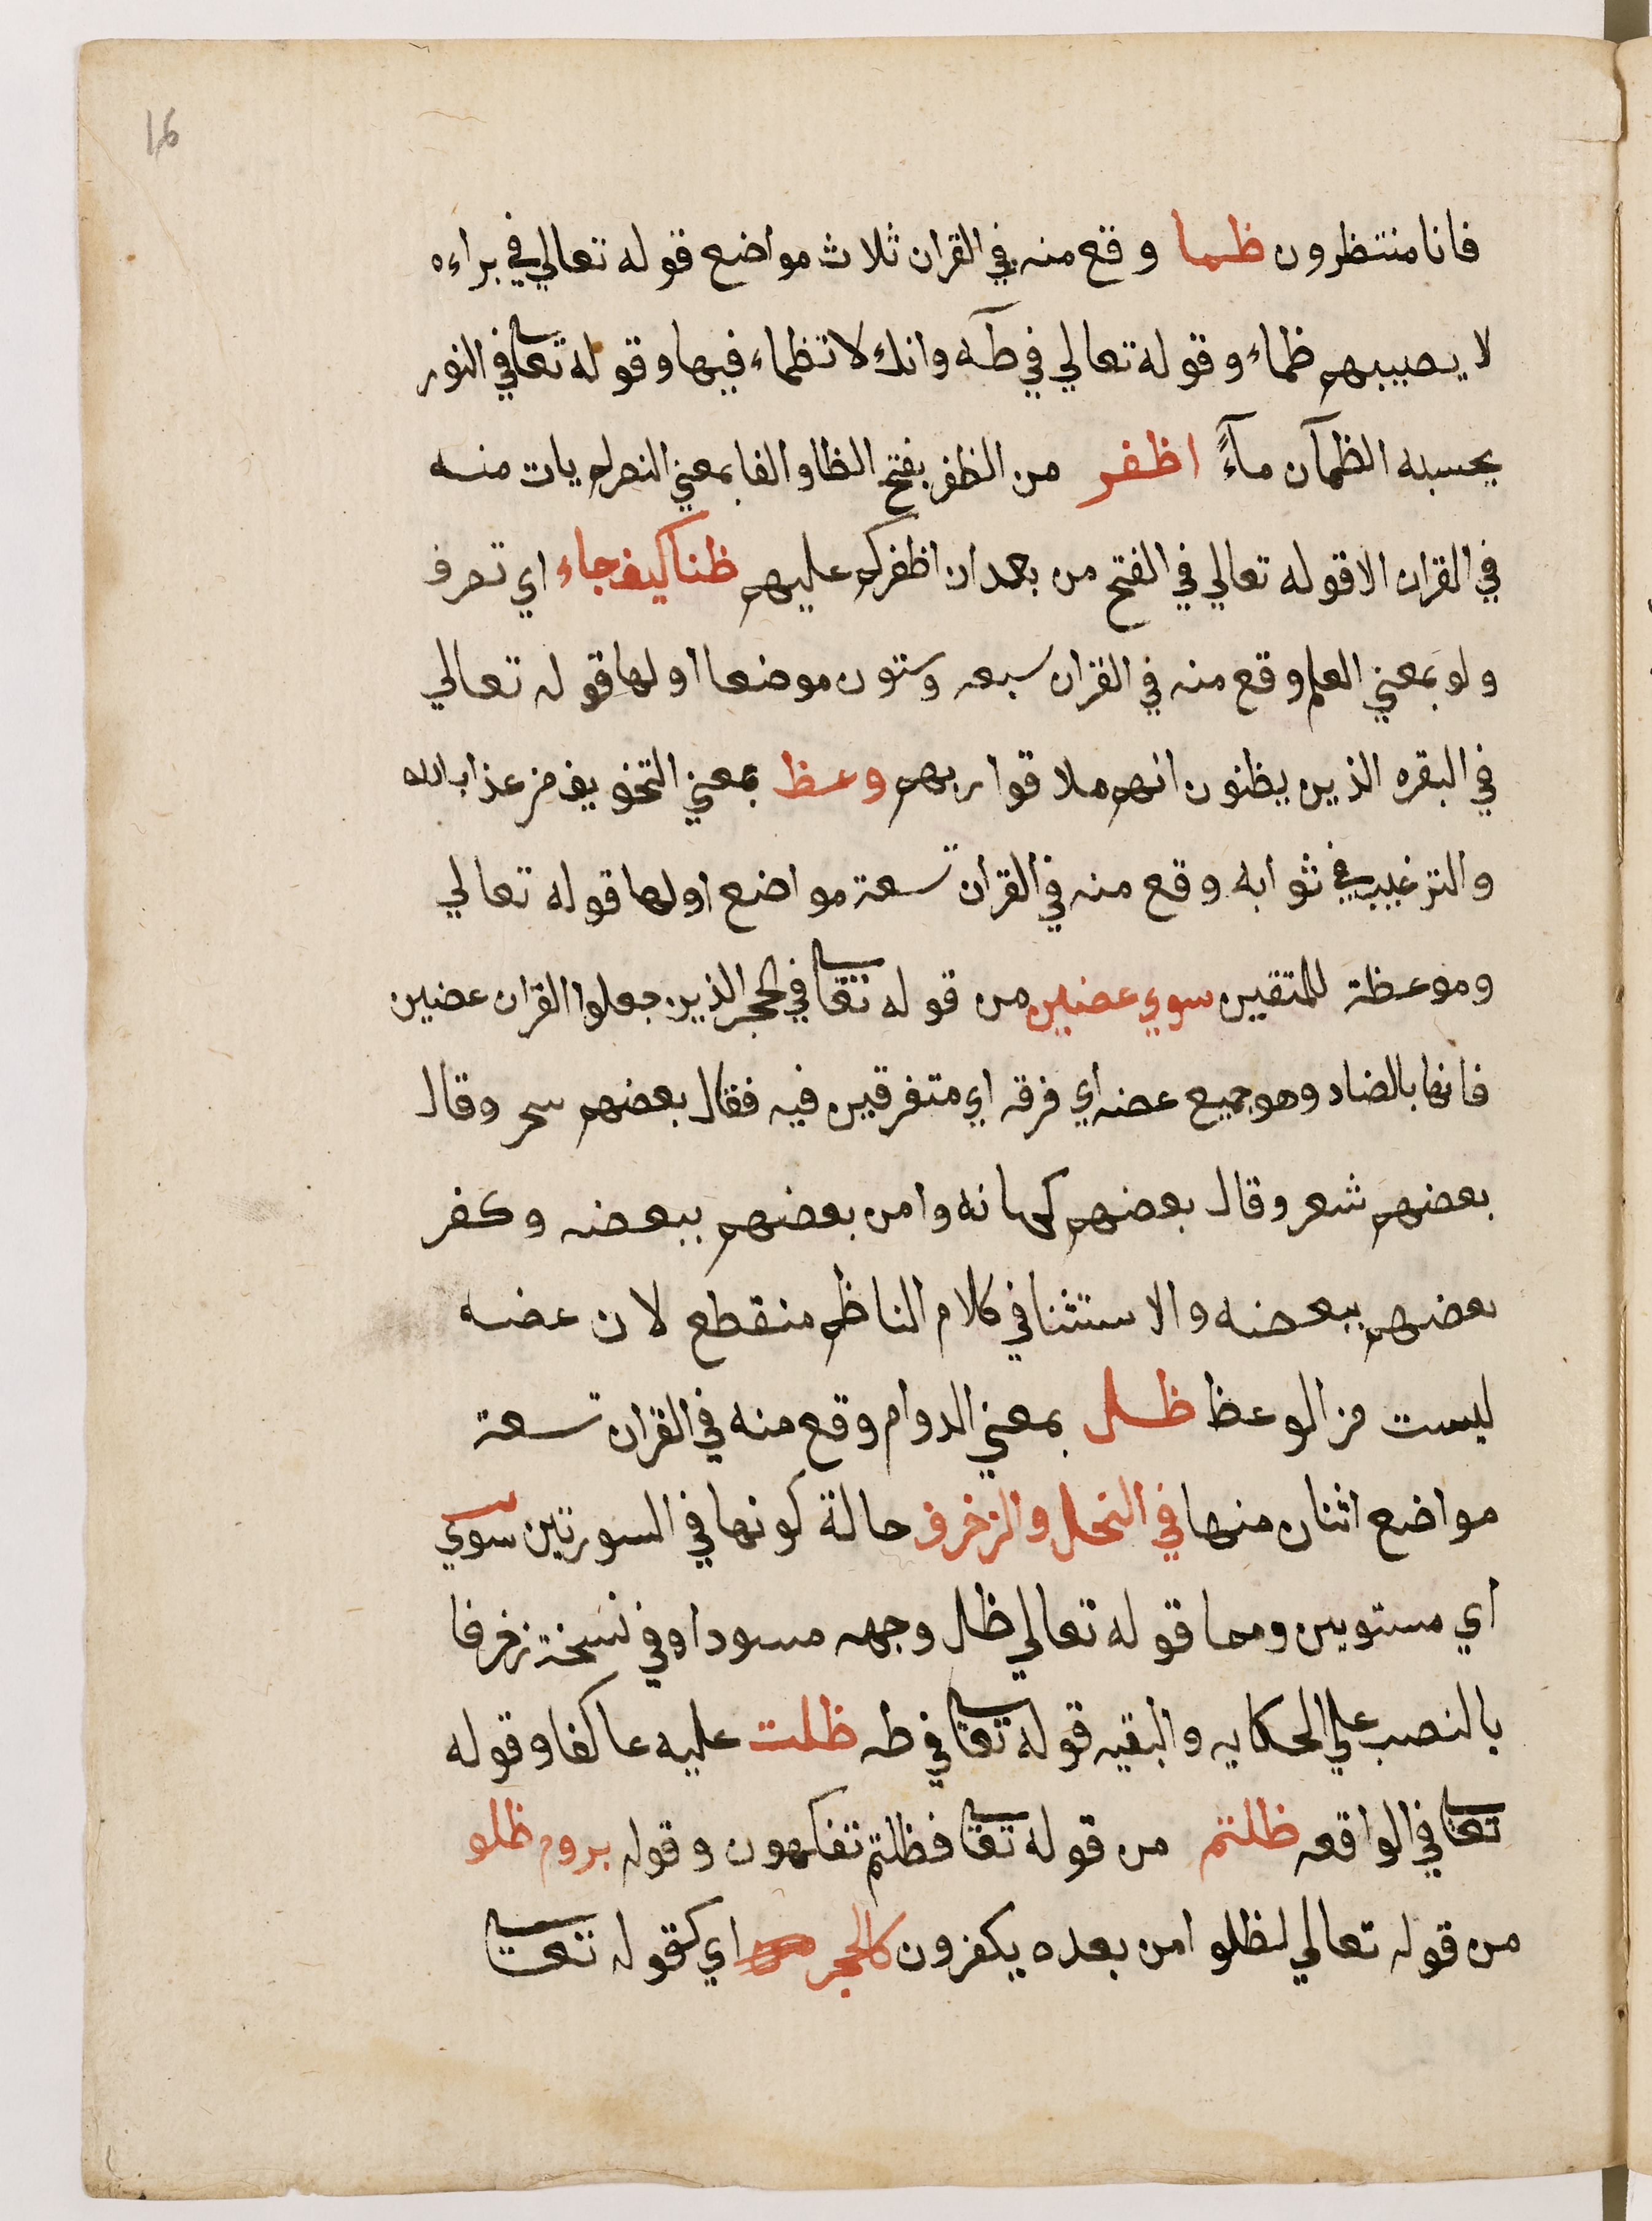 16
فانا منتظرون ظما وقع منه في القران ثلاث مواضع قوله تعالي في براءه
لا يصيبهم ظماء وقوله تعالي في طه وانك لا تظماء فيها وقوله تعا في النور
يحسبه الظمآن مآءً اظفر من الظفر بفتح الظا والفا بمعني النصر لم يات منه
في القران الا قوله تعالي في الفتح من بعد ان اظفركم عليهم ظنا كيف جاء اي تصرف
ولو بمعني العلم وقع منه في القران سبعه وستون موضعا اولها قوله تعالي
في البقره الذين يظنون انهم ملاقوا ربهم وعظ بمعني التخويف من عذاب الله
والترغيب في ثوابه وقع منه في القران تسعة مواضع اولها قوله تعالي
وموعظة للمتقين سوي عضين من قوله تعا في الحجر الذين جعلوا القران عضين
فانها بالضاد وهو جميع عضه اي فرقه اي متفرقين فيه فقال بعضهم سحر وقال
بعضهم شعر وقال بعضهم كهانه وامن بعضهم ببعضه وكفر
بعضهم ببعضه والاستثنا في كلام الناظم منقطع لان عضه
ليست من الوعظ ظل بمعني الدوام وقع منه في القران تسعة
مواضع اثنان منها في النحل والزخرف حالة كونها في السورتين سوي
اي مستويين وهما قوله تعالي ظل وجهه مسودا وفي نسخة زخرفا
بالنصب علي الحكايه والبقيه قوله تعا في طه ظلت عليه عاكفا وقوله
تعا في الواقعه ظلتم من قوله تعا فظلتم تفكهون وقوله بروم ظلو
من قوله تعالي لظلوا من بعده يكفرون كالحجر اي كقوله تعا